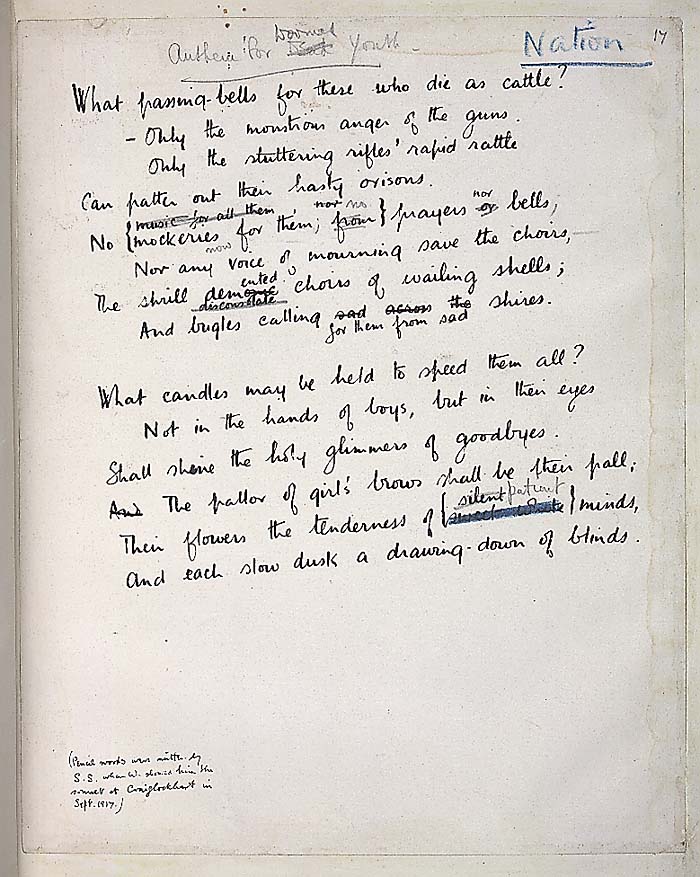 Anthem for Doomed Dead Youth - Nation 17
What passing-bells for these who die as cattle?
- Only the monstrous anger of the guns.
Only the stuttering rifles' rapid rattle
Can patter out their hasty orisons.
music for all them nor no nor
No { mockeries for them; from } prayers or bells,
now
Nor any voice of mourning save the choirs,-
ented
The shrill demonic choirs of wailing shells;
disconsolate
And bugles calling sad across the shires.
for them from sad
What candles may be held to speed them all?
Not in the hands of boys, but in their eyes
Shall shine the holy glimmers of goodbyes.
And The pallor of girl's brows shall be their pall;
silent patient
Their flowers the tenderness of { sweet white } minds,
And each slow dusk a drawing-down of blinds.
(Pencil words were written by
S.S. when W. showed him the
sonnet at Craiglockhart in
Sept. 1917.)